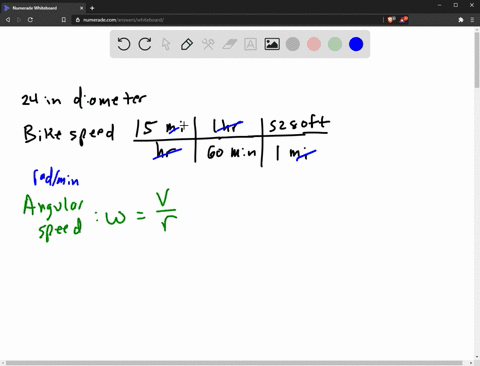 Numerade Whiteboard
numerade.com/answers/whiteboard/
24 in diameter
Bike speed 15 mi 1hr 5280ft
hr 60 min 1 mi
rad/min
Angular speed : ω = V/r